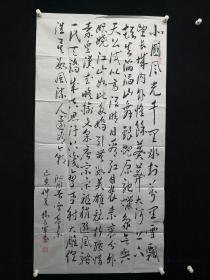 北國風光千里冰封萬里雪飄
望長城內外惟餘莽莽大河上下
頓失滔滔山舞銀蛇原馳蠟象欲與
天公試比高須晴日看紅裝素裹分外
妖嬈江山如此多嬌引無數英雄競折腰惜
秦皇漢武略輸文采唐宗宋祖稍遜風騷
一代天驕成吉思汗只識彎弓射大雕俱
往矣數風流人物還看今朝 沁園春雪
仲夏